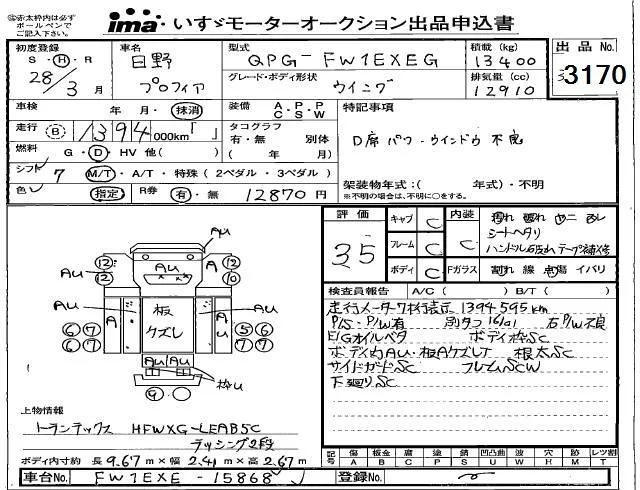 ①赤太枠内は必ず
ボールペンで
ご記入下さい。
ima いすゞモーターオークション出品申込書
初度登録 S・H・R 28/3月
車名 日野 プロフィア
型式 QPG-FW1EXEG
積載(kg) 13400
出品No. 3170
グレード・ボディ形状 ウイング
排気量(cc) 12910
車検 年・月・抹消
装備 A・P・P C・S・W
特記事項
走行 B 1394 000km
タコグラフ 有・無 別体
D席 パワーウインドウ 不良
燃料 G・D・HV 他( )
シフト 7 M/T・A/T・特殊(2ペダル・3ペダル)
架装物年式:( 年式)・不明
※不明の場合は、不明に○をする。
色 指定 R券 有・無 12870円
評価 35
キャブ C
フレーム C
ボディ C
内装 C
シートヘタリ
ハンドル破れテープ補修
Fガラス 割れ 線 点傷 イバリ
検査員報告 A/C( ) B/T( )
走行メーター7桁表示 1394595km
P/S・P/W有 別タコ 16/01 右P/W不良
E/Gオイルベタ ボディ枠SC
ボディ内AU・板AケズレT 根太SC
サイドガードSC フレームSCW
下廻りSC
AU AU
12 12 AU A 12 10
AU AU
6 7 A 板ケズレ A 5 6
6 7 7 7
AU AU
枠U
9
上物情報
トランテックス HFWXG-LEAB5C
ラッシング2段
ボディ内寸約 長 9.67m×幅 2.41m×高 2.67m
記号 傷 A 板金 B 腐 C 塗 P 錆 S 凹凸曲 U 波 W 穴 H 外 M レツ割 T
車台No. FW1EXE-15868
登録No.